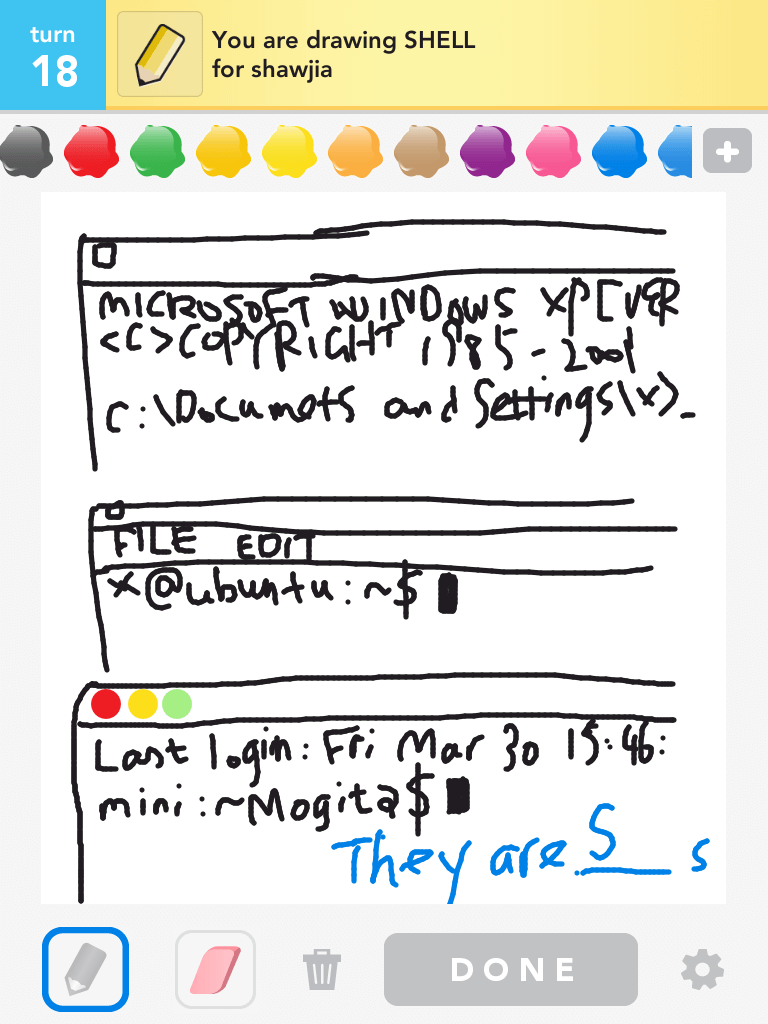 turn
18
You are drawing SHELL
for shawjia
MICROSOFT WINDOWS XP [VER
<C>COPYRIGHT 1985-2001
C:\Documets and Settings\x>_
FILE EDIT
x@ubuntu:~$
Last login: Fri Mar 30 15:46:
mini:~Mogita$
They are S___ s
DONE